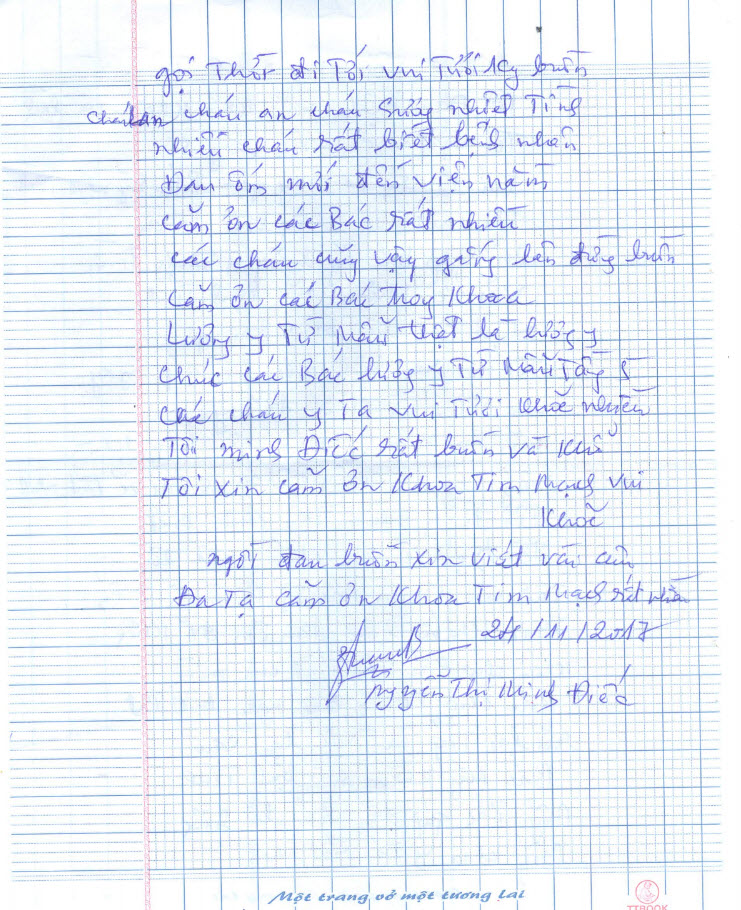 gọi Thót đi Tới vui Tươi ky buồn
cháu an cháu an cháu Sướng nhiệt Tình
nhiều cháu rất biết bệnh nhân
Đau ốm mới đến viện nằm
Cảm ơn các Bác rất nhiều
các cháu cũng vậy gắng lên đừng buồn
Cảm ơn các Bác Khoa
Lương y Từ Mẫu thật là lương y
Chúc các Bác lương y Từ Mẫu Tầng 5
các cháu y Tá vui Tươi khỏe nhiều
Tôi minh Điếc rất buồn và khổ
Tôi xin cảm ơn Khoa Tim Mạch vui
Khỏe
người đau buồn xin viết vài câu
Đa Tạ cảm ơn Khoa Tim Mạch rất nhiều
24/11/2017
Nguyễn Thị Minh Điếc
Một trang vở một tương lai
TTBOOK